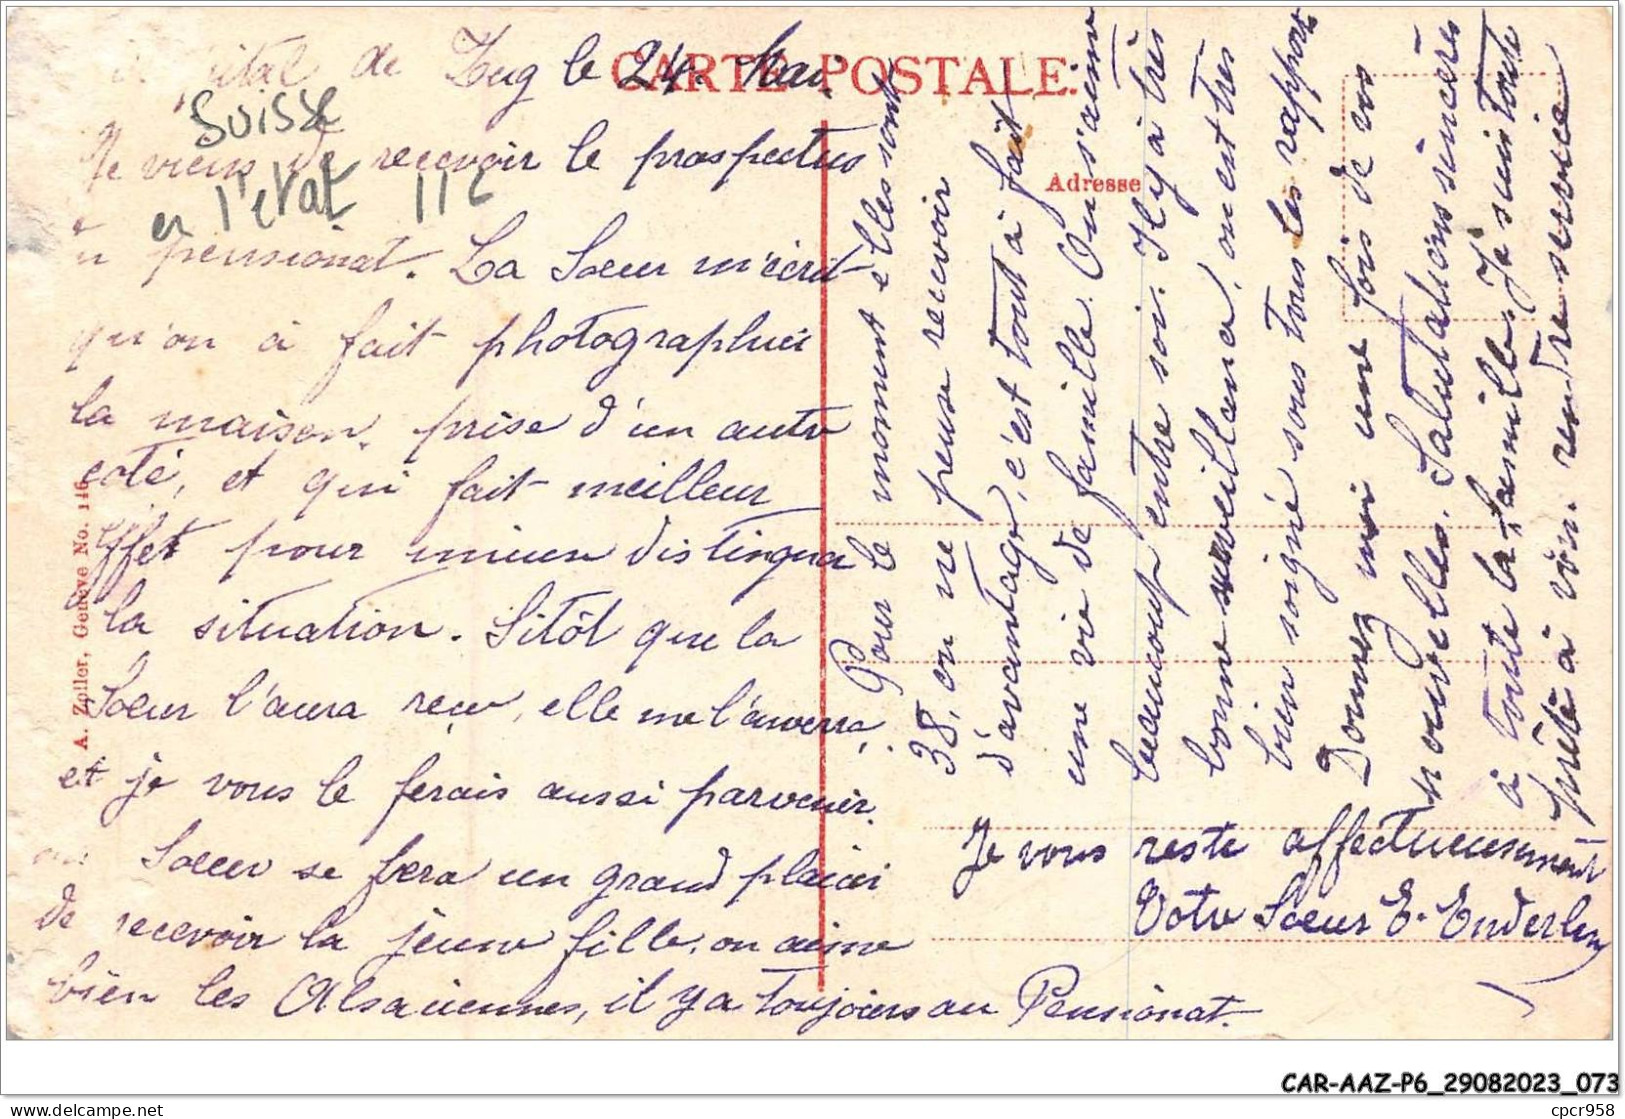 de Zug le 24 Mai.
CARTE POSTALE.
Suisse
en l'etat 112
Je viens de recevoir le prospectus
pensionat. La Soeur m'écrit
qu'on à fait photographier
la maison, prise d'un autre
coté, et qui fait meilleur
effet pour mieux distinguer
la situation. Sitôt que la
Soeur l'aura reçu, elle me l'enverra,
et je vous le ferais aussi parvenir.
Soeur se fera un grand plaisir
de recevoir la jeune fille, on aime
bien les Alsaciennes, il y a toujours au Pensionat.
Adresse
Pour le moment elles sont
38, on ne peux recevoir
d'avantage, c'est tout à fait
une vie de famille. On s'aime
beaucoup entre soi. Il y à très
bonne surveillance, on est très
bien soigné sous tous les rapports
Donnez moi une fois de vos
nouvelles. Salutations sincères
à toute la famille. Je suis toute
prête à vous rendre service
Je vous reste affectueusement
Votre Soeur E. Enderlen
A. Zoller, Genève No. 116
CAR-AAZ-P6_29082023_073
delcampe.net
cpcr958